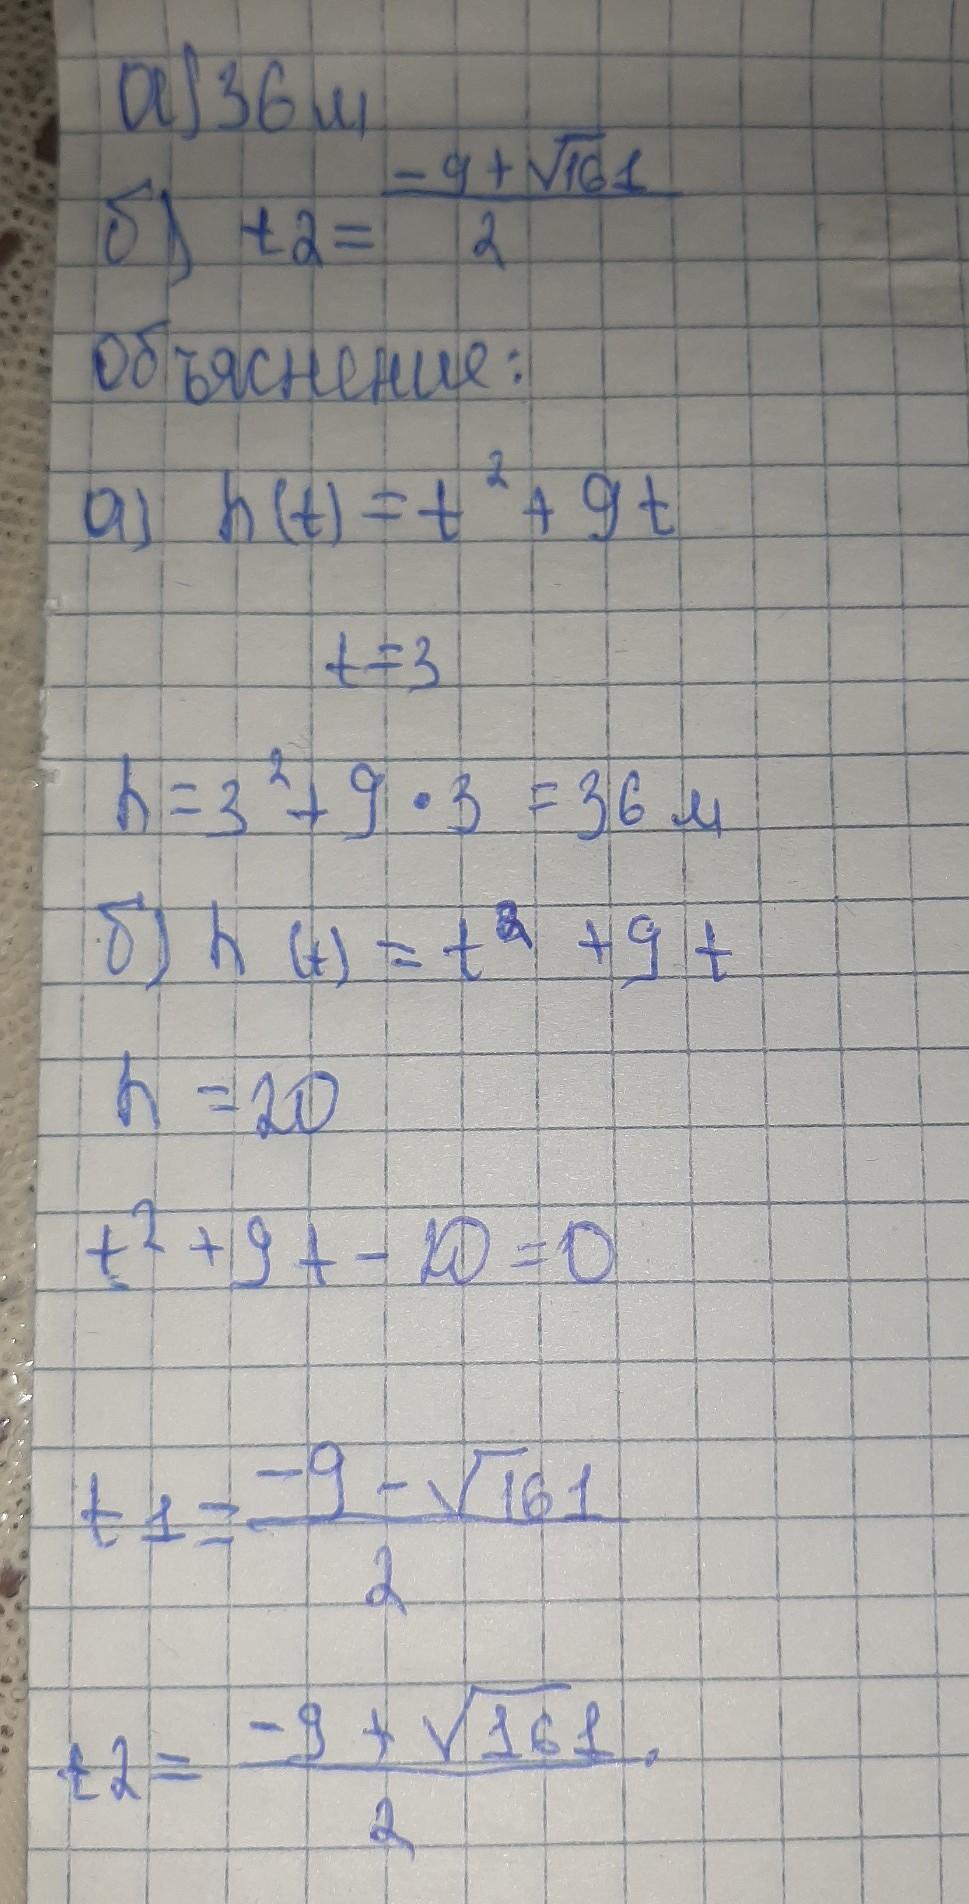 а) 36 м
б) t2 = (-9 + √161) / 2
Объяснение:
а) h(t) = t² + 9t
t = 3
h = 3² + 9 • 3 = 36 м
б) h (t) = t² + 9 t
h = 20
t² + 9t - 20 = 0
t1 = (-9 - √161) / 2
t2 = (-9 + √161) / 2.